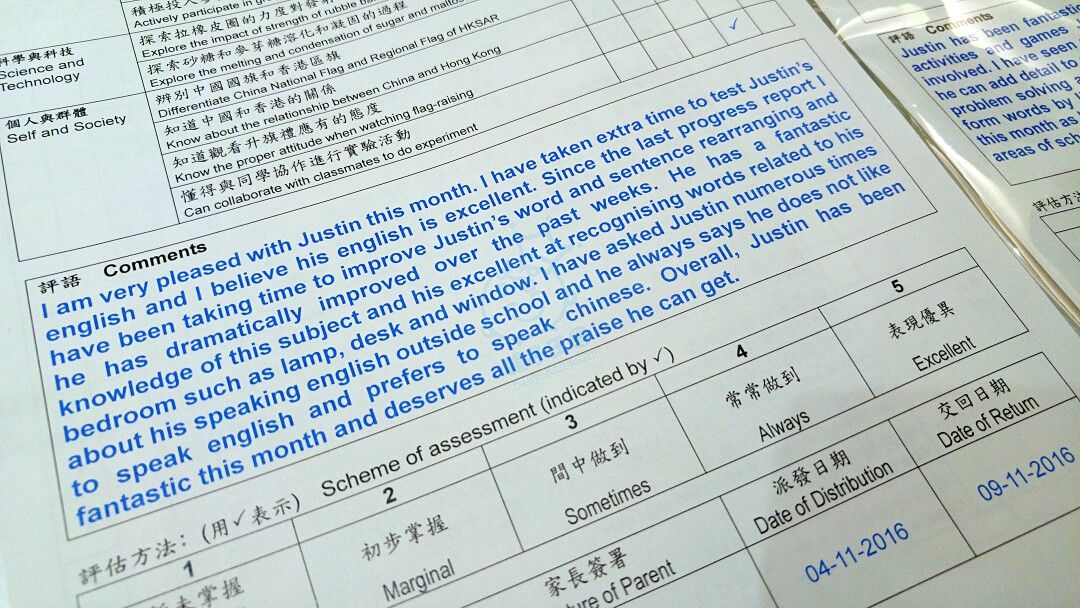 Actively participate in
探索拉橡皮圈的力度對發射
Explore the impact of strength of rubble
科學與科技
Science and
Technology
探索砂糖和麥芽糖溶化和凝固的過程
Explore the melting and condensation of sugar and
✓
辨別中國國旗和香港區旗
Differentiate China National Flag and Regional Flag of HKSAR
個人與群體
Self and Society
知道中國和香港的關係
Know about the relationship between China and Hong Kong
知道觀看升旗禮應有的態度
Know the proper attitude when watching flag-raising
懂得與同學協作進行實驗活動
Can collaborate with classmates to do experiment
評語 Comments
I am very pleased with Justin this month. I have taken extra time to test Justin's
english and I believe his english is excellent. Since the last progress report I
have been taking time to improve Justin's word and sentence rearranging and
he has dramatically improved over the past weeks. He has a fantastic
knowledge of this subject and his excellent at recognising words related to his
bedroom such as lamp, desk and window. I have asked Justin numerous times
about his speaking english outside school and he always says he does not like
to speak english and prefers to speak chinese. Overall, Justin has been
fantastic this month and deserves all the praise he can get.
評估方法：(用✓表示) Scheme of assessment (indicated by ✓)
1 2 3 4 5
未掌握 初步掌握 間中做到 常常做到 表現優異
Marginal Sometimes Always Excellent
家長簽署 派發日期 交回日期
of Parent Date of Distribution Date of Return
04-11-2016 09-11-2016
評語 Comments
Justin has been
activities and games
involved. I have seen
he can add detail to
problem solving
form words by
this month as
areas of
評估方